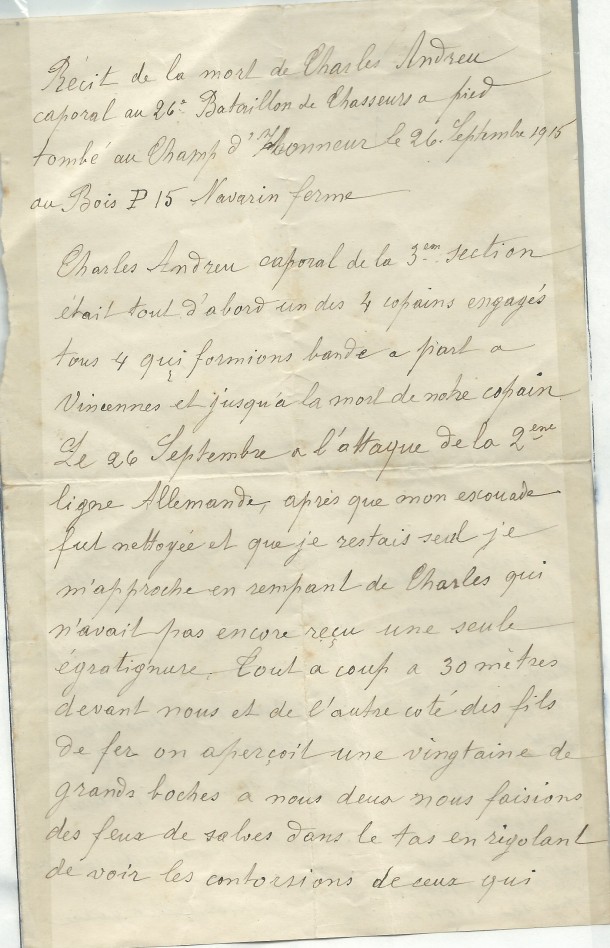 Récit de la mort de Charles Andreu
caporal au 26e Bataillon de Chasseurs a pied
tombé au Champ d'Honneur le 26 Septembre 1915
au Bois P 15 Navarin ferme
Charles Andreu caporal de la 3em section
était tout d'abord un des 4 copains engagés
tous 4 qui formions bande a part a
Vincennes et jusqu'a la mort de notre copain
Le 26 Septembre a l'attaque de la 2eme
ligne Allemande, après que mon escouade
fut nettoyée et que je restais seul je
m'approche en rempant de Charles qui
n'avait pas encore reçu une seule
égratignure. Tout a coup a 30 mètres
devant nous et de l'autre coté des fils
de fer on aperçoit une vingtaine de
grands boches a nous deux nous faisions
des feux de salves dans le tas en rigolant
de voir les contorsions de ceux qui